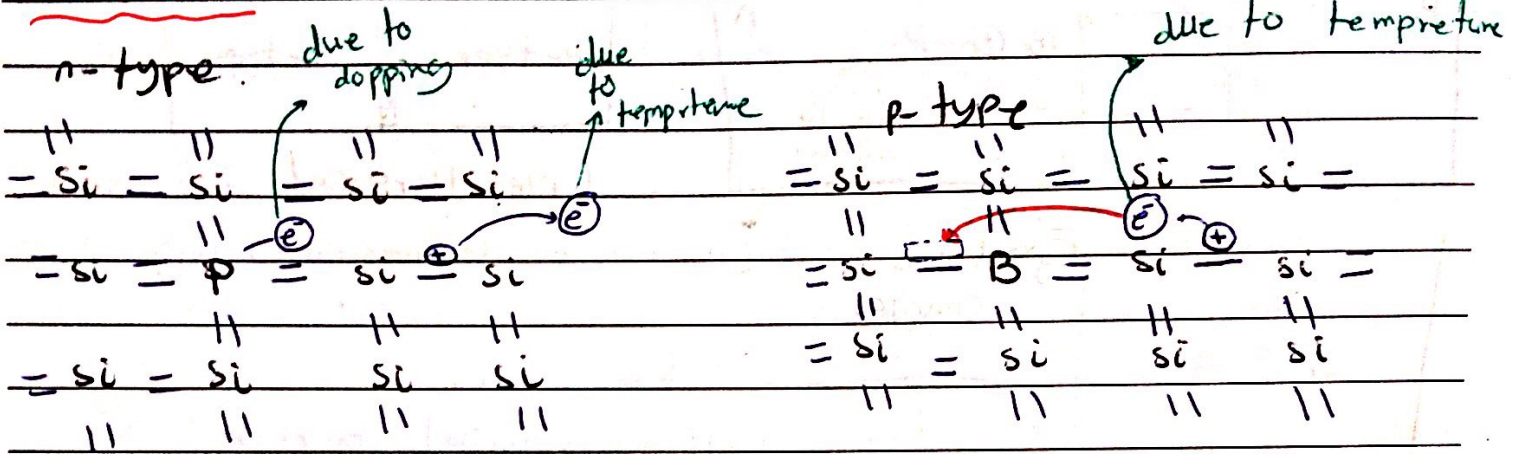 n-type.
due to
dopping
due
to
temprteme
= Si = Si = Si - Si
= Si = P - e⁻ = Si ⊕ = Si e⁻
= Si = Si Si Si
due to temprieture
p-type
= Si = Si = Si = Si =
e⁻ ⊕
= Si = B = Si - Si =
= Si = Si Si Si